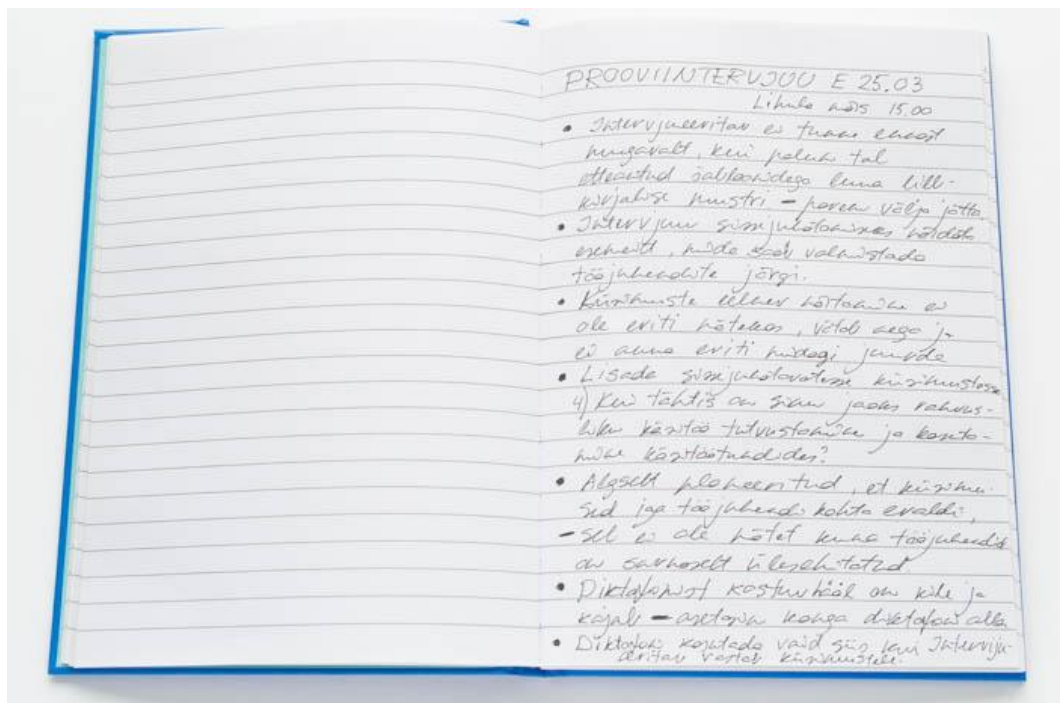 PROOVIINTERVJUU E 25.03
Lihula mõis 15.00
• Intervjueeritav ei tunne ennast
mugavalt, kui palun tal
etteantud šabloonidega luua lill-
kirjalise mustri – parem välja jätta
• Intervjuu sissejuhatamises näidata
esemeid, mida saab valmistada
tööjuhendite järgi.
• Küsimuste eelnev näitamine ei
ole eriti mõtekas, võtab aega ja
ei anna eriti midagi juurde
• Lisada sissejuhatavatesse küsimustesse
4) Kui tähtis on sinu jaoks rahvus-
liku käsitöö tutvustamine ja kasuta-
mine käsitöötundides?
• Algselt planeeritud, et küsimu-
sed iga tööjuhendi kohta eraldi,
– sel ei ole mõtet kuna tööjuhendid
on sarnaselt ülesehitatud.
• Diktofonist kostuv hääl on kile ja
kajab – asetasin kanga diktofoni alla
• Diktofoni kasutada vaid siis kui Intervju-
eeritav vastab küsimustele.